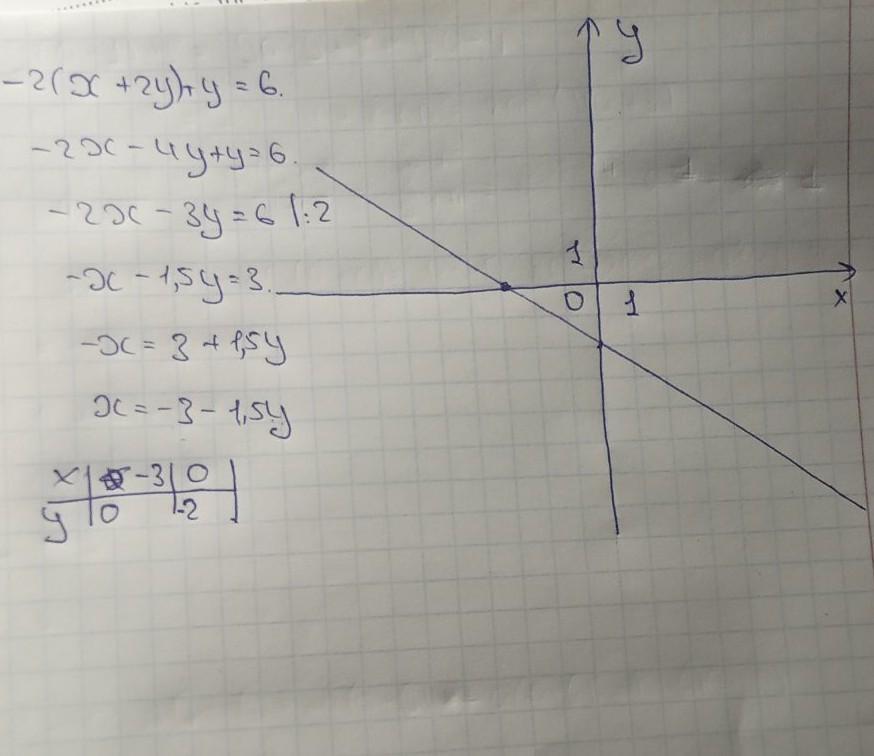 -2(x+2y)+y=6.
-2x-4y+y=6.
-2x-3y=6 |:2
-x-1,5y=3.
-x=3+1,5y
x=-3-1,5y
x | -3 | 0 |
y | 0 | -2 |
y
1
0 1 x